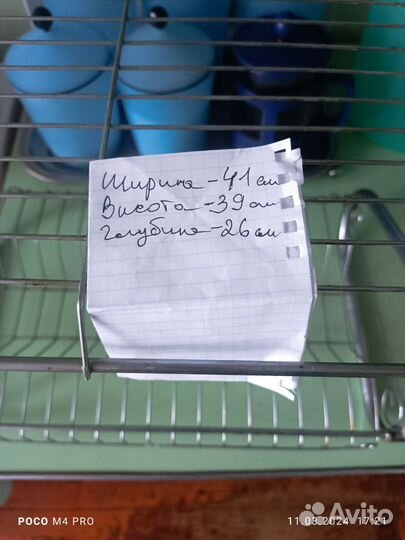 Ширина-41 см
Высота-39 см
Глубина-26 см
POCO M4 PRO
11.03.2024 17:21
Avito